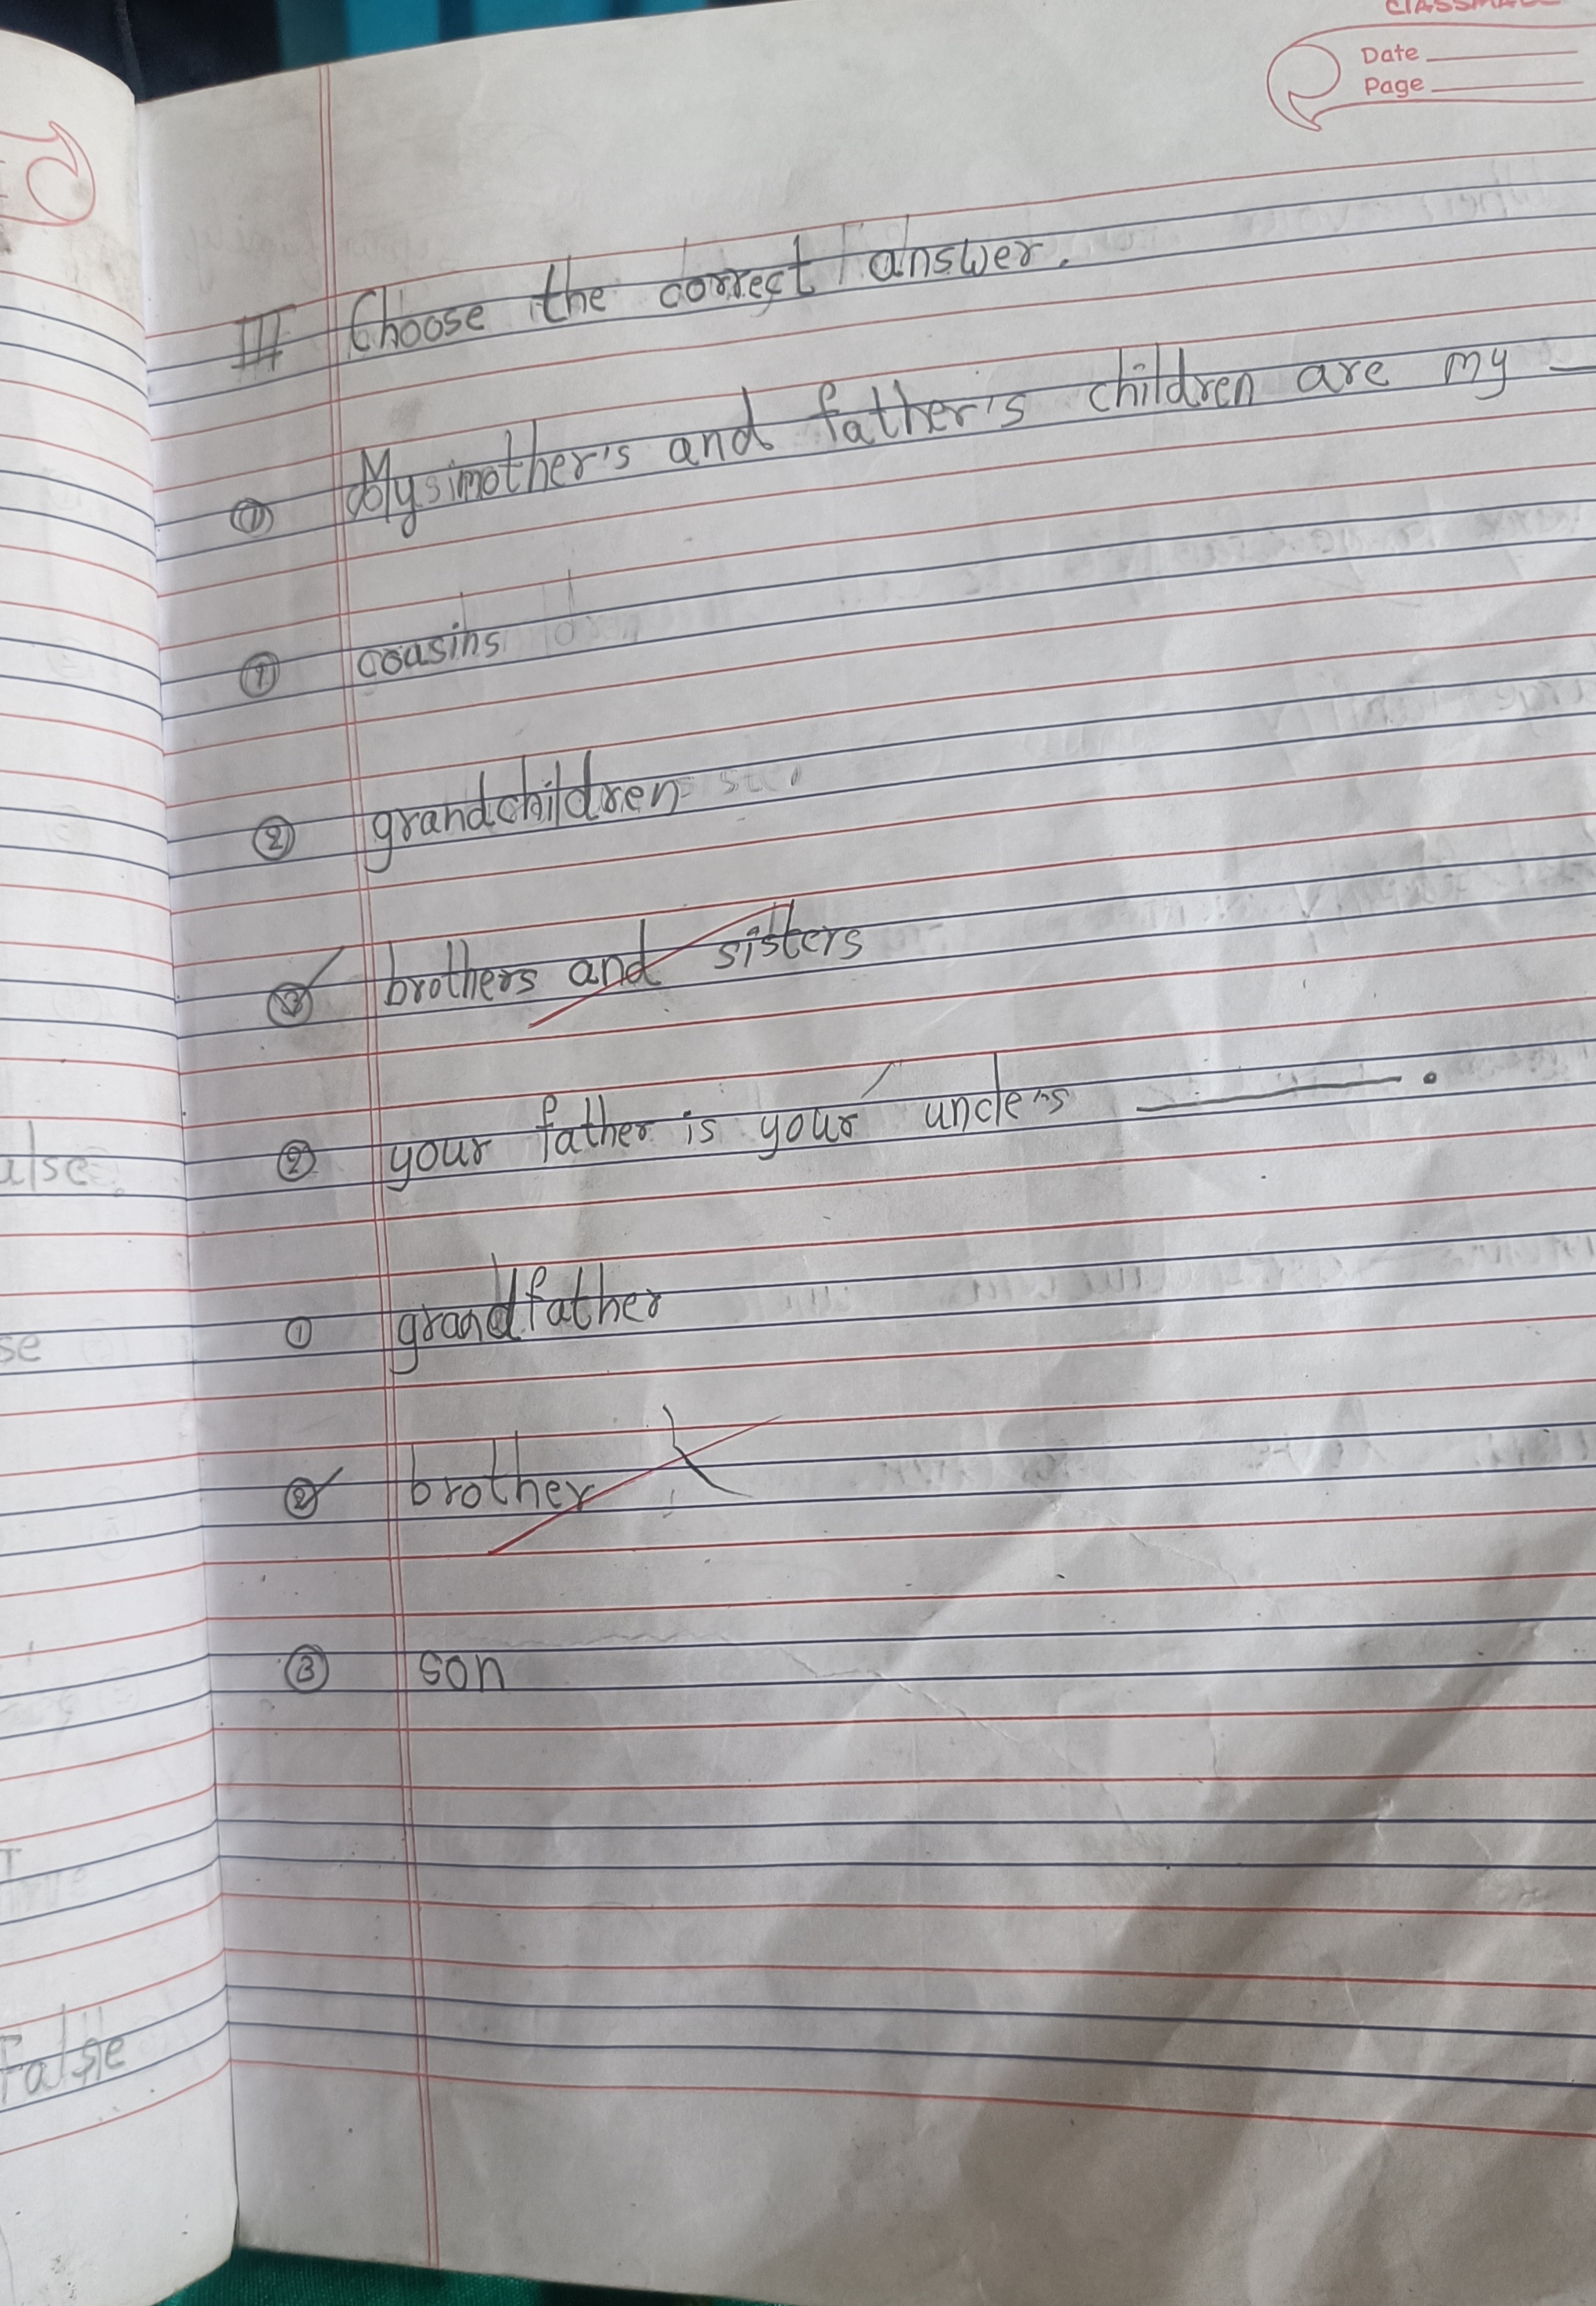 classmate
Date
Page
III Choose the correct answer.
① My mother's and father's children are my —
① cousins
② grandchildren
③ brothers and sisters
② your father is your uncle's ———.
① grandfather
② brother
③ son
alse
se
False